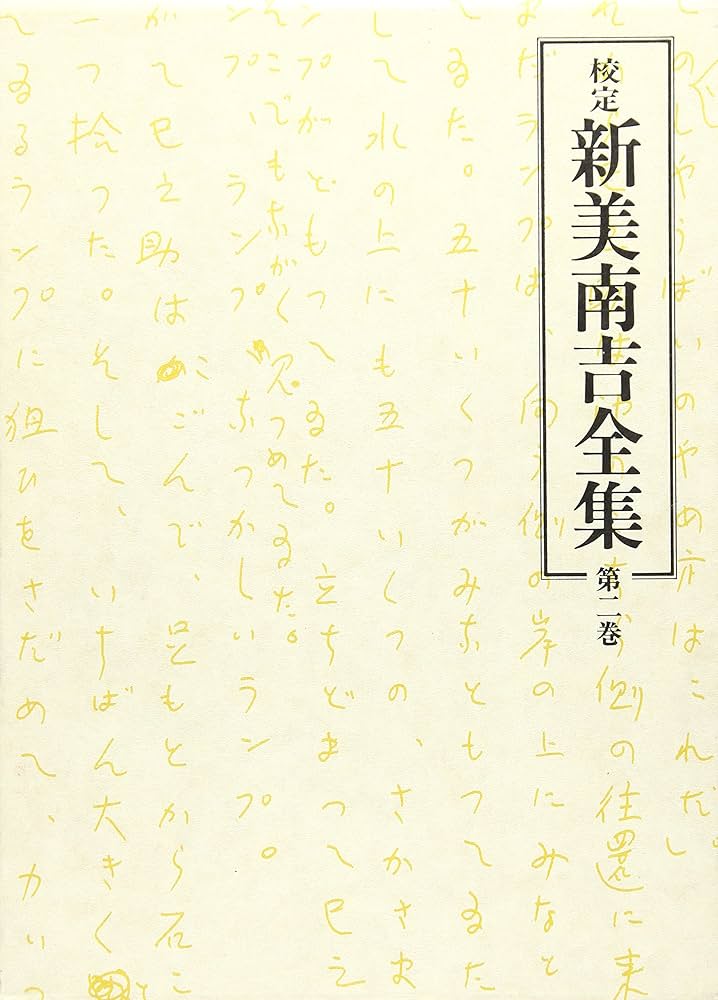 校定
新美南吉全集
第二巻
のしやうばいのやめ方はこれだ。
側の往還に来
まだランプは、向う側の岸の上にみなと
ゐた。五十いくつがみなともつてゐた
して水の上にも五十いくつの、さかさま
ンプがともつてゐた。立ちどまつて巳之
そこでもながく見つめてゐた。
ンプ、ランプ、なつかしいランプ。
がて巳之助はかごんで、足もとから石こ
一つ拾つた。そして、いちばん大きくと
てゐるランプに狙ひをさだめて、力いつ